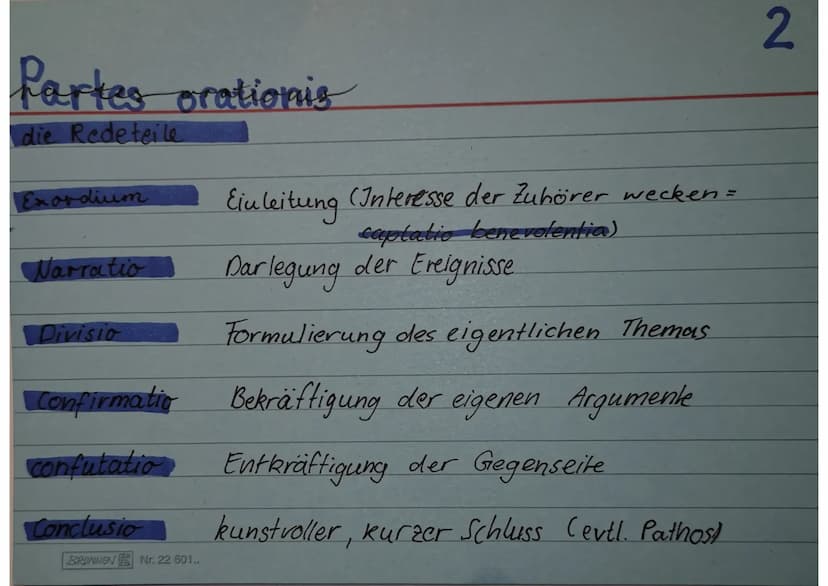 2
Partes orationis
die Redeteile
Exordium Einleitung (Interesse der Zuhörer wecken =
captatio benevolentia)
Narratio Darlegung der Ereignisse
Divisio Formulierung des eigentlichen Themas
Confirmatio Bekräftigung der eigenen Argumente
confutatio Entkräftigung der Gegenseite
Conclusio kunstvoller, kurzer Schluss (evtl. Pathos)
BRUNNEN Nr. 22 601..